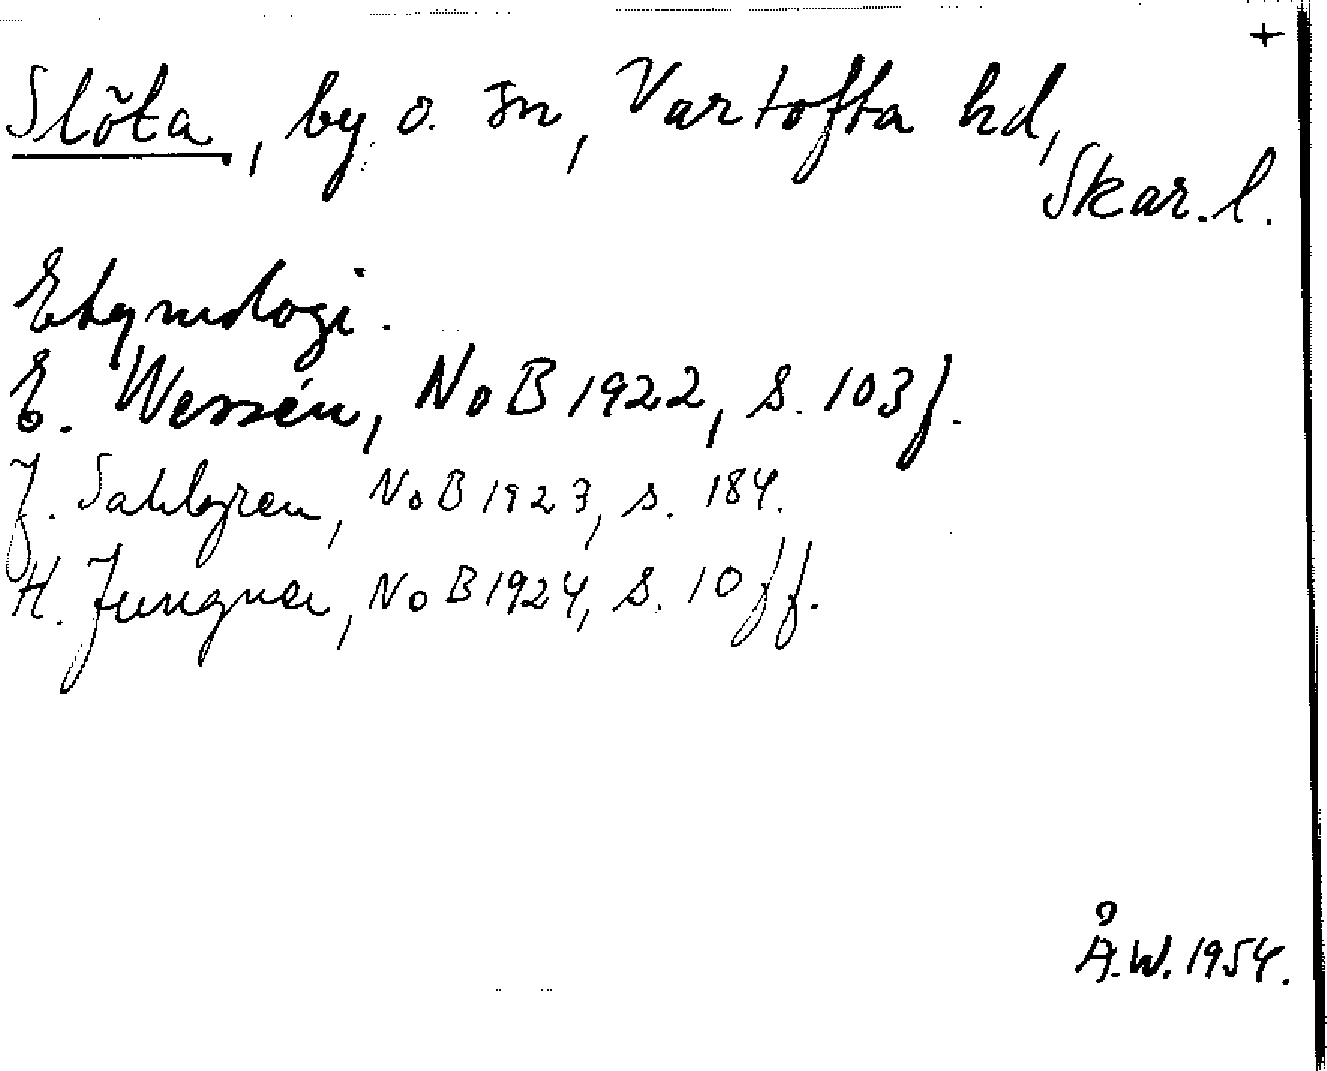 +
Slöta, by o. sn, Vartofta hd,
Skar. l.
Etymologi.
E. Wessén, NoB 1922, s. 103 f.
J. Sahlgren, NoB 1923, s. 184.
H. Jungner, NoB 1924, s. 10 ff.
Å.W. 1954.